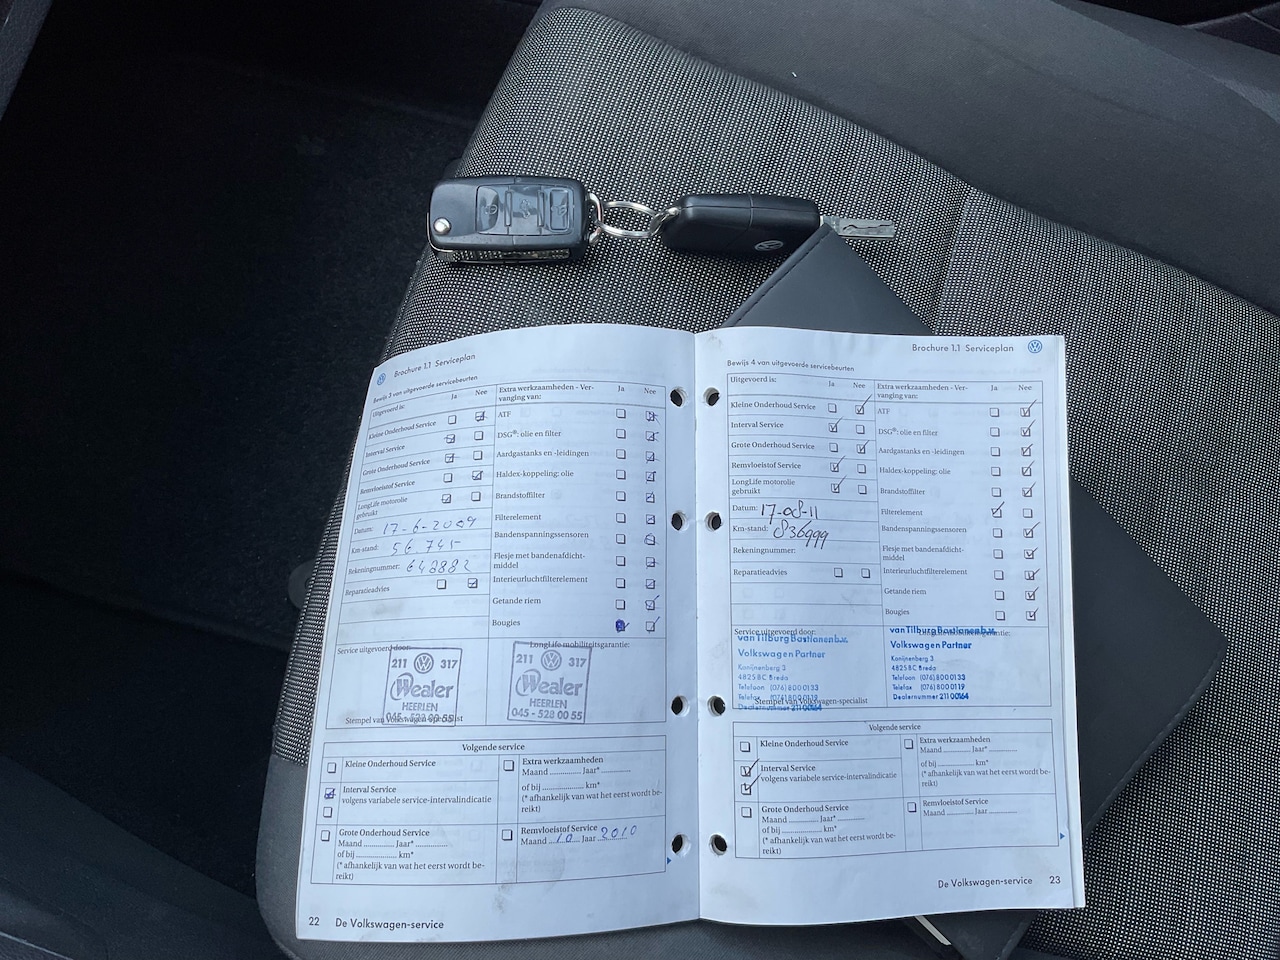 Brochure 1.1 Serviceplan
Bewijs 3 van uitgevoerde servicebeurten
Uitgevoerd is:
Ja
Nee
Kleine Onderhoud Service
Interval Service
Grote Onderhoud Service
Remvloeistof Service
LongLife motorolie
gebruikt
Datum: 17-6-2009
Km-stand: 56 745
Rekeningnummer: 648882
Reparatieadvies
Extra werkzaamheden - Ver-
vanging van:
Ja
Nee
ATF
DSG®: olie en filter
Aardgastanks en -leidingen
Haldex-koppeling: olie
Brandstoffilter
Filterelement
Bandenspanningssensoren
Flesje met bandenafdicht-
middel
Interieurluchtfilterelement
Getande riem
Bougies
Service uitgevoerd door:
211 317
Wealer
HEERLEN
045 - 528 00 55
Stempel van Volkswagen-specialist
LongLife mobiliteitsgarantie:
211 317
Wealer
HEERLEN
045 - 528 00 55
Volgende service
Kleine Onderhoud Service
Interval Service
volgens variabele service-intervalindicatie
Grote Onderhoud Service
Maand ............ Jaar* ............
of bij ............ km*
(* afhankelijk van wat het eerst wordt be-
reikt)
Extra werkzaamheden
Maand ............ Jaar* ............
of bij ............ km*
(* afhankelijk van wat het eerst wordt be-
reikt)
Remvloeistof Service
Maand 10 Jaar 2010
22 De Volkswagen-service
Brochure 1.1 Serviceplan
Bewijs 4 van uitgevoerde servicebeurten
Uitgevoerd is:
Ja
Nee
Kleine Onderhoud Service
Interval Service
Grote Onderhoud Service
Remvloeistof Service
LongLife motorolie
gebruikt
Datum: 17-08-11
Km-stand: 836999
Rekeningnummer:
Reparatieadvies
Extra werkzaamheden - Ver-
vanging van:
Ja
Nee
ATF
DSG®: olie en filter
Aardgastanks en -leidingen
Haldex-koppeling: olie
Brandstoffilter
Filterelement
Bandenspanningssensoren
Flesje met bandenafdicht-
middel
Interieurluchtfilterelement
Getande riem
Bougies
Service uitgevoerd door:
van Tilburg Bastianen b.v.
Volkswagen Partner
Konijnenberg 3
4825 BC Breda
Telefoon (076) 800 0133
Telefax (076) 800 0119
Dealernummer 211 00164
Stempel van Volkswagen-specialist
LongLife mobiliteitsgarantie:
van Tilburg Bastianen b.v.
Volkswagen Partner
Konijnenberg 3
4825 BC Breda
Telefoon (076) 800 0133
Telefax (076) 800 0119
Dealernummer 211 00164
Volgende service
Kleine Onderhoud Service
Interval Service
volgens variabele service-intervalindicatie
Grote Onderhoud Service
Maand ............ Jaar* ............
of bij ............ km*
(* afhankelijk van wat het eerst wordt be-
reikt)
Extra werkzaamheden
Maand ............ Jaar* ............
of bij ............ km*
(* afhankelijk van wat het eerst wordt be-
reikt)
Remvloeistof Service
Maand ............ Jaar ............
De Volkswagen-service 23